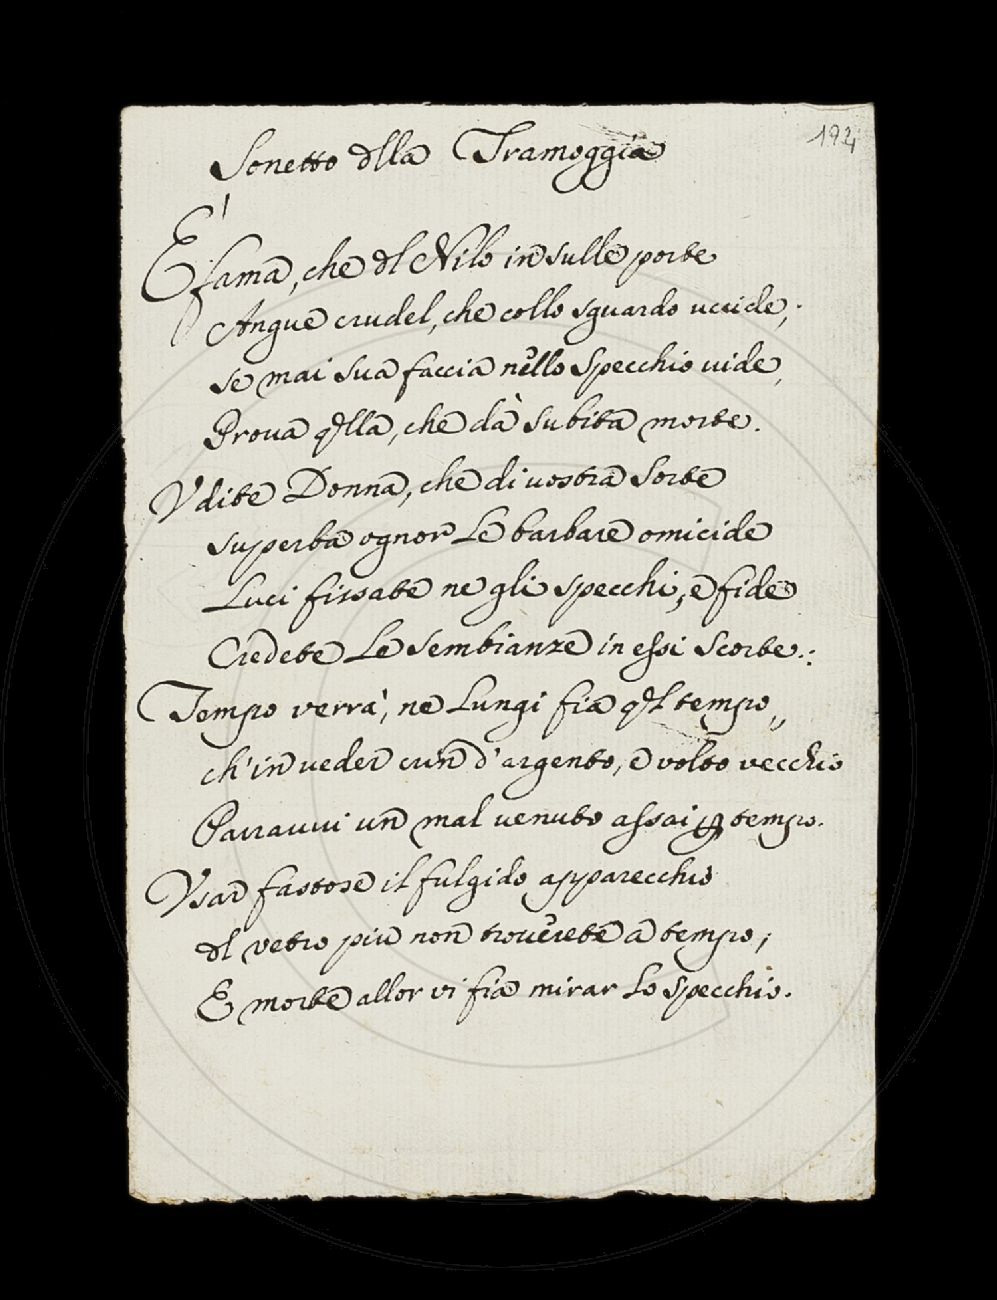 194
Sonetto dlla Tramoggia
E' fama, che dl Nilo in sulle porte
Angue crudel, che collo sguardo uccide,
se mai sua faccia nello specchio vide,
Prova qlla, che dà subita morte.
Udite Donna, che di vostra sorte
superba ognor Le barbare omicide
Luci fissate ne gli specchi, e fide
Credete Le sembianze in essi scorte.
Tempo verrà, ne Lungi fia ql tempo,
ch'in veder crin d'argento, e volto vecchio
Parravvi un mal venuto assai p tempo.
Usar fastose il fulgido apparecchio
dl vetro più non troverete a tempo;
E morte allor vi fia mirar Lo specchio.